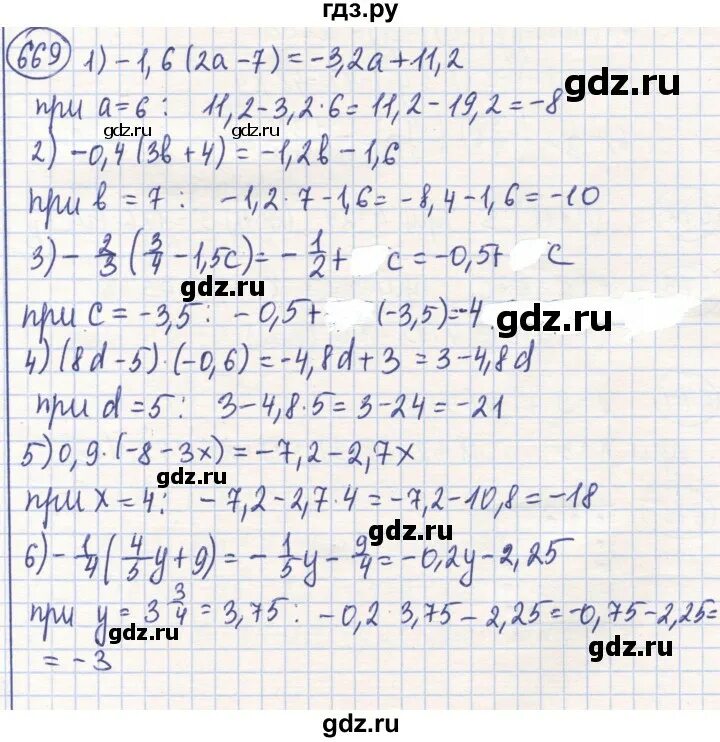 гдз.ру
669 1) -1,6(2a-7)=-3,2a+11,2
при a=6: 11,2-3,2·6=11,2-19,2=-8
gdz.ru
gdz.ru gdz.ru
2) -0,4(3b+4)=-1,2b-1,6
при b=7: -1,2·7-1,6=-8,4-1,6=-10
3) -2/3(3/4-1,5c)=-1/2+ c=-0,5+ c
gdz.ru
при c=-3,5: -0,5+ (-3,5)=-4
gdz.ru
4) (8d-5)·(-0,6)=-4,8d+3=3-4,8d
при d=5: 3-4,8·5=3-24=-21
5) 0,9·(-8-3x)=-7,2-2,7x
gdz.ru
при x=4: -7,2-2,7·4=-7,2-10,8=-18
gdz.ru
6) -1/4(4/5y+9)=-1/5y-9/4=-0,2y-2,25
при y=3 3/4=3,75: -0,2·3,75-2,25=-0,75-2,25=
gdz.ru
gdz.ru
=-3
gdz.ru